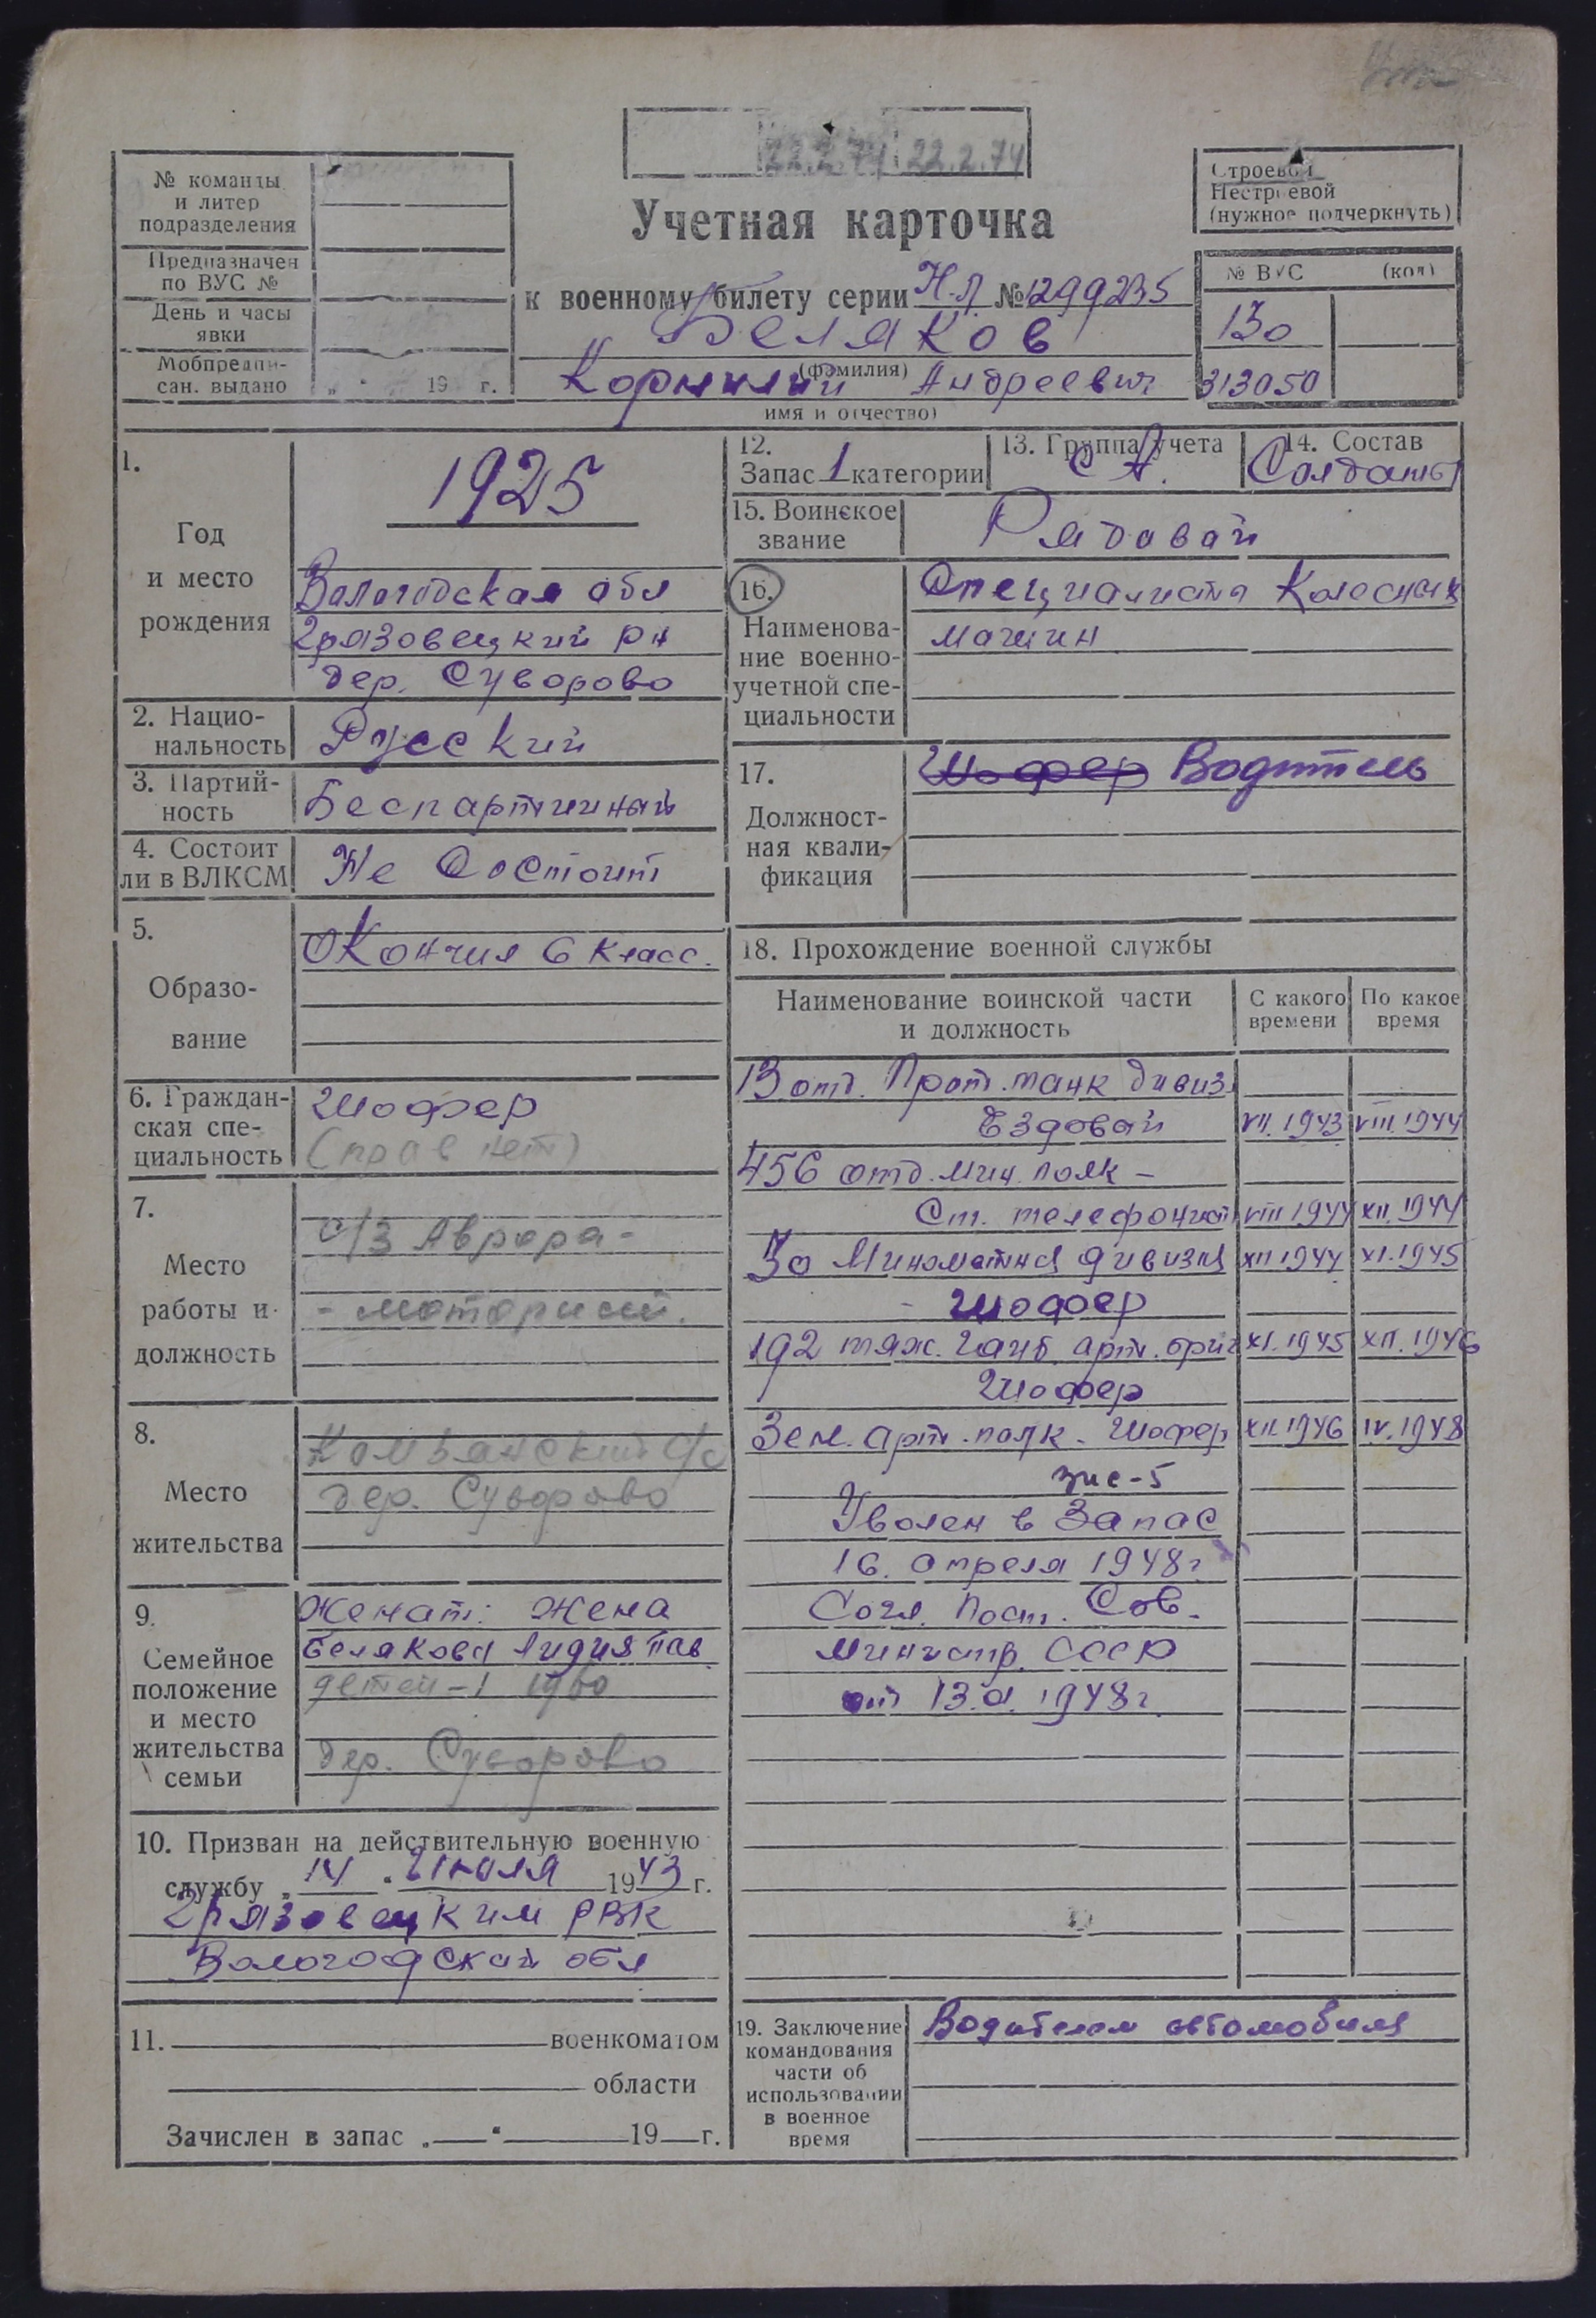 22.2.74 22.2.74
№ команды
и литер
подразделения
Предназначен
по ВУС №
День и часы
явки
Мобпредпи-
сан. выдано „ “ 19 г.
Строевой
Нестроевой
(нужное подчеркнуть)
№ ВУС (код)
130
313050
Учетная карточка
к военному билету серии НЛ №1299235
Беляков
(фамилия)
Корнилий Андреевич
имя и отчество)
1.
Год
и место
рождения
1925
Вологодская обл
Грязовецкий рн
дер. Суворово
2. Нацио-
нальность
Русский
3. Партий-
ность
Беспартийный
4. Состоит
ли в ВЛКСМ
Не состоит
5.
Образо-
вание
Окончил 6 класс.
6. Граждан-
ская спе-
циальность
Шофер
(прав нет)
7.
Место
работы и
должность
с/з Аврора -
- моторист.
8.
Место
жительства
с/с
дер. Суворово
9.
Семейное
положение
и место
жительства
семьи
Женат: Жена
Белякова Лидия Пав
детей - 1 1960
дер. Суворово
10. Призван на действительную военную
службу „14“ Июля 1943 г.
Грязовецким РВК
Вологодской обл
11. военкоматом
области
Зачислен в запас „ “ 19 г.
12.
Запас 1 категории
13. Группа учета
СА.
14. Состав
Солдаты
15. Воинское
звание
Рядовой
16.
Наименова-
ние военно-
учетной спе-
циальности
Специалисты Колесных
машин
17.
Должност-
ная квали-
фикация
Шофер Водитель
18. Прохождение военной службы
Наименование воинской части
и должность
С какого
времени
По какое
время
13 отд. Прот. танк дивиз.
Ездовой VII. 1943 VIII. 1944
456 отд. мин. полк -
Ст. телефонист VIII 1944 XII. 1944
30 Минометная дивизия XII 1944 XI. 1945
- Шофер
192 тяж. гауб. арт. бриг XI. 1945 XII. 1946
Шофер
Зен. арт. полк - Шофер XII. 1946 IV. 1948
зис-5
Уволен в Запас
16. апреля 1948г
Согл. Пост. Сов.
министр. СССР
от 1948г.
19. Заключение
командования
части об
использовании
в военное
время
Водителем автомобиля